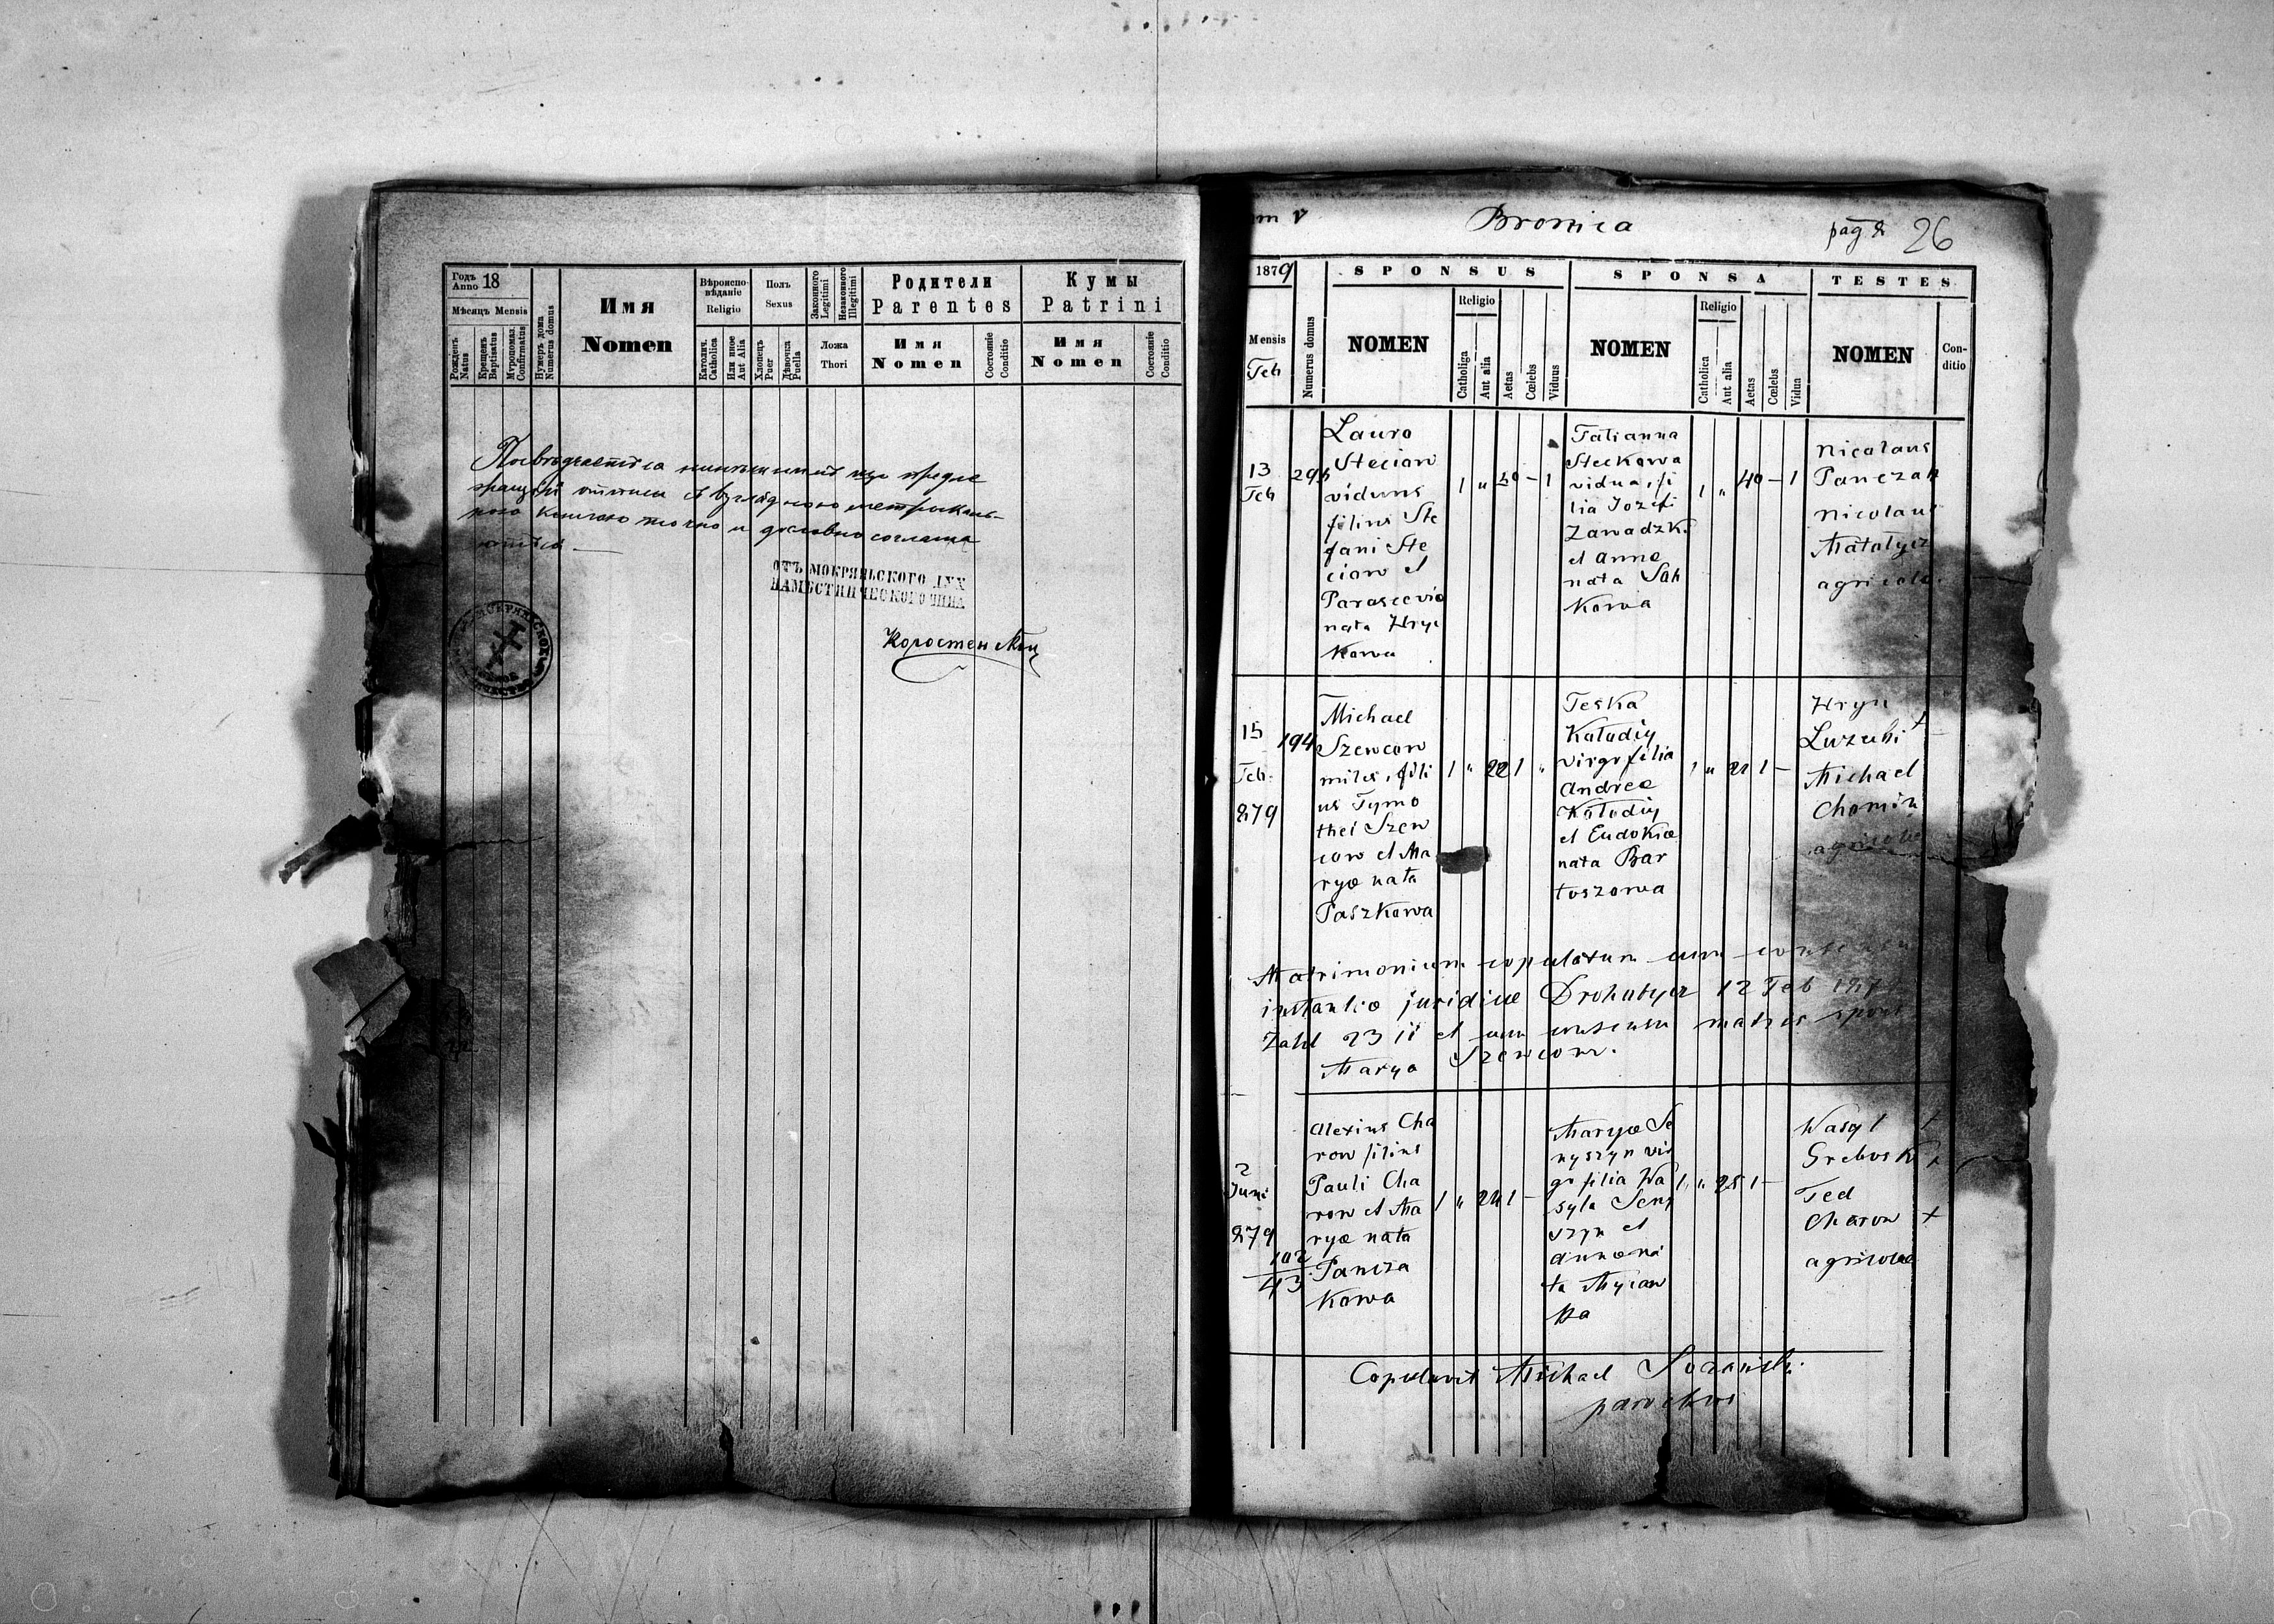 Годъ
Anno 18
Мѣсяцъ Mensis
Рожденъ
Natus
Крещенъ
Baptisatus
Мѵропомаз.
Confirmatus
Нумеръ дома
Numerus domus
Имя
Nomen
Вѣроиспо-
вѣданіе
Religio
Католич.
Catholica
Или иное
Aut Alia
Полъ
Sexus
Хлопецъ
Puer
Дѣвочка
Puella
Законного
Legitimi
Незаконного
Illegitimi
Ложа
Thori
Родители
Parentes
Имя
Nomen
Состояніе
Conditio
Кумы
Patrini
Имя
Nomen
Состояніе
Conditio
точно и дословно
ОТЪ МОКРЯНЬСКОГО
НАМѢСТНИЧЕСКОГО ЧИНА
Bronica
pag 2 26
1879
Mensis
Feb
Numerus domus
SPONSUS
NOMEN
Religio
Catholica
Aut alia
Aetas
Cœlebs
Viduus
SPONSA
NOMEN
Religio
Catholica
Aut alia
Aetas
Cœlebs
Vidua
TESTES
NOMEN
Con-
ditio
13
Feb
Lauro
Steciow
viduus
filius Ste
fani Ste
ciow et
Parascevia
nata Hryc
kowa
1 " 50 – 1
Tatianna
Steckowa
vidua, fi
lia Jozefi
Zawadzki
et Anna
nata Sah
kowa
1 " 40 – 1
Nicolaus
Panczak
Nicolaus
Matolycz
agricolae
15
Feb.
879
194
Michael
Szewcow
miles, fili
us Tymo
thei Szew
cow et Ma
ryae nata
Paszkowa
1 " 22 1 "
Teska
Kolodiy
virgo filia
Andree
Kolodiy
et Eudokiae
nata Bar
toszowa
1 " 21 1 –
Hryn
Luzecki +
Michael
Chomin
agricolae
Matrimonium copulatum cum consensu
instantiae juridicae Drohobycz 12 Feb 1879
Zahl 23 11 et cum consensu matris spons
Marya Szewcow.
2
Juni
879
102
43
Alexius Cha
row filius
Pauli Cha
row et Ma
ryae nata
Pancza
kowa
1 " 24 1 –
Maryae Se
nyszyn vir
go filia Wa
syla Seny
szyn et
Annae na
ta Mycaw
ka
1 " 25 1 –
Wasyl +
Fed
Charow +
agricolae
Copulavit Michael Sozański
parochus